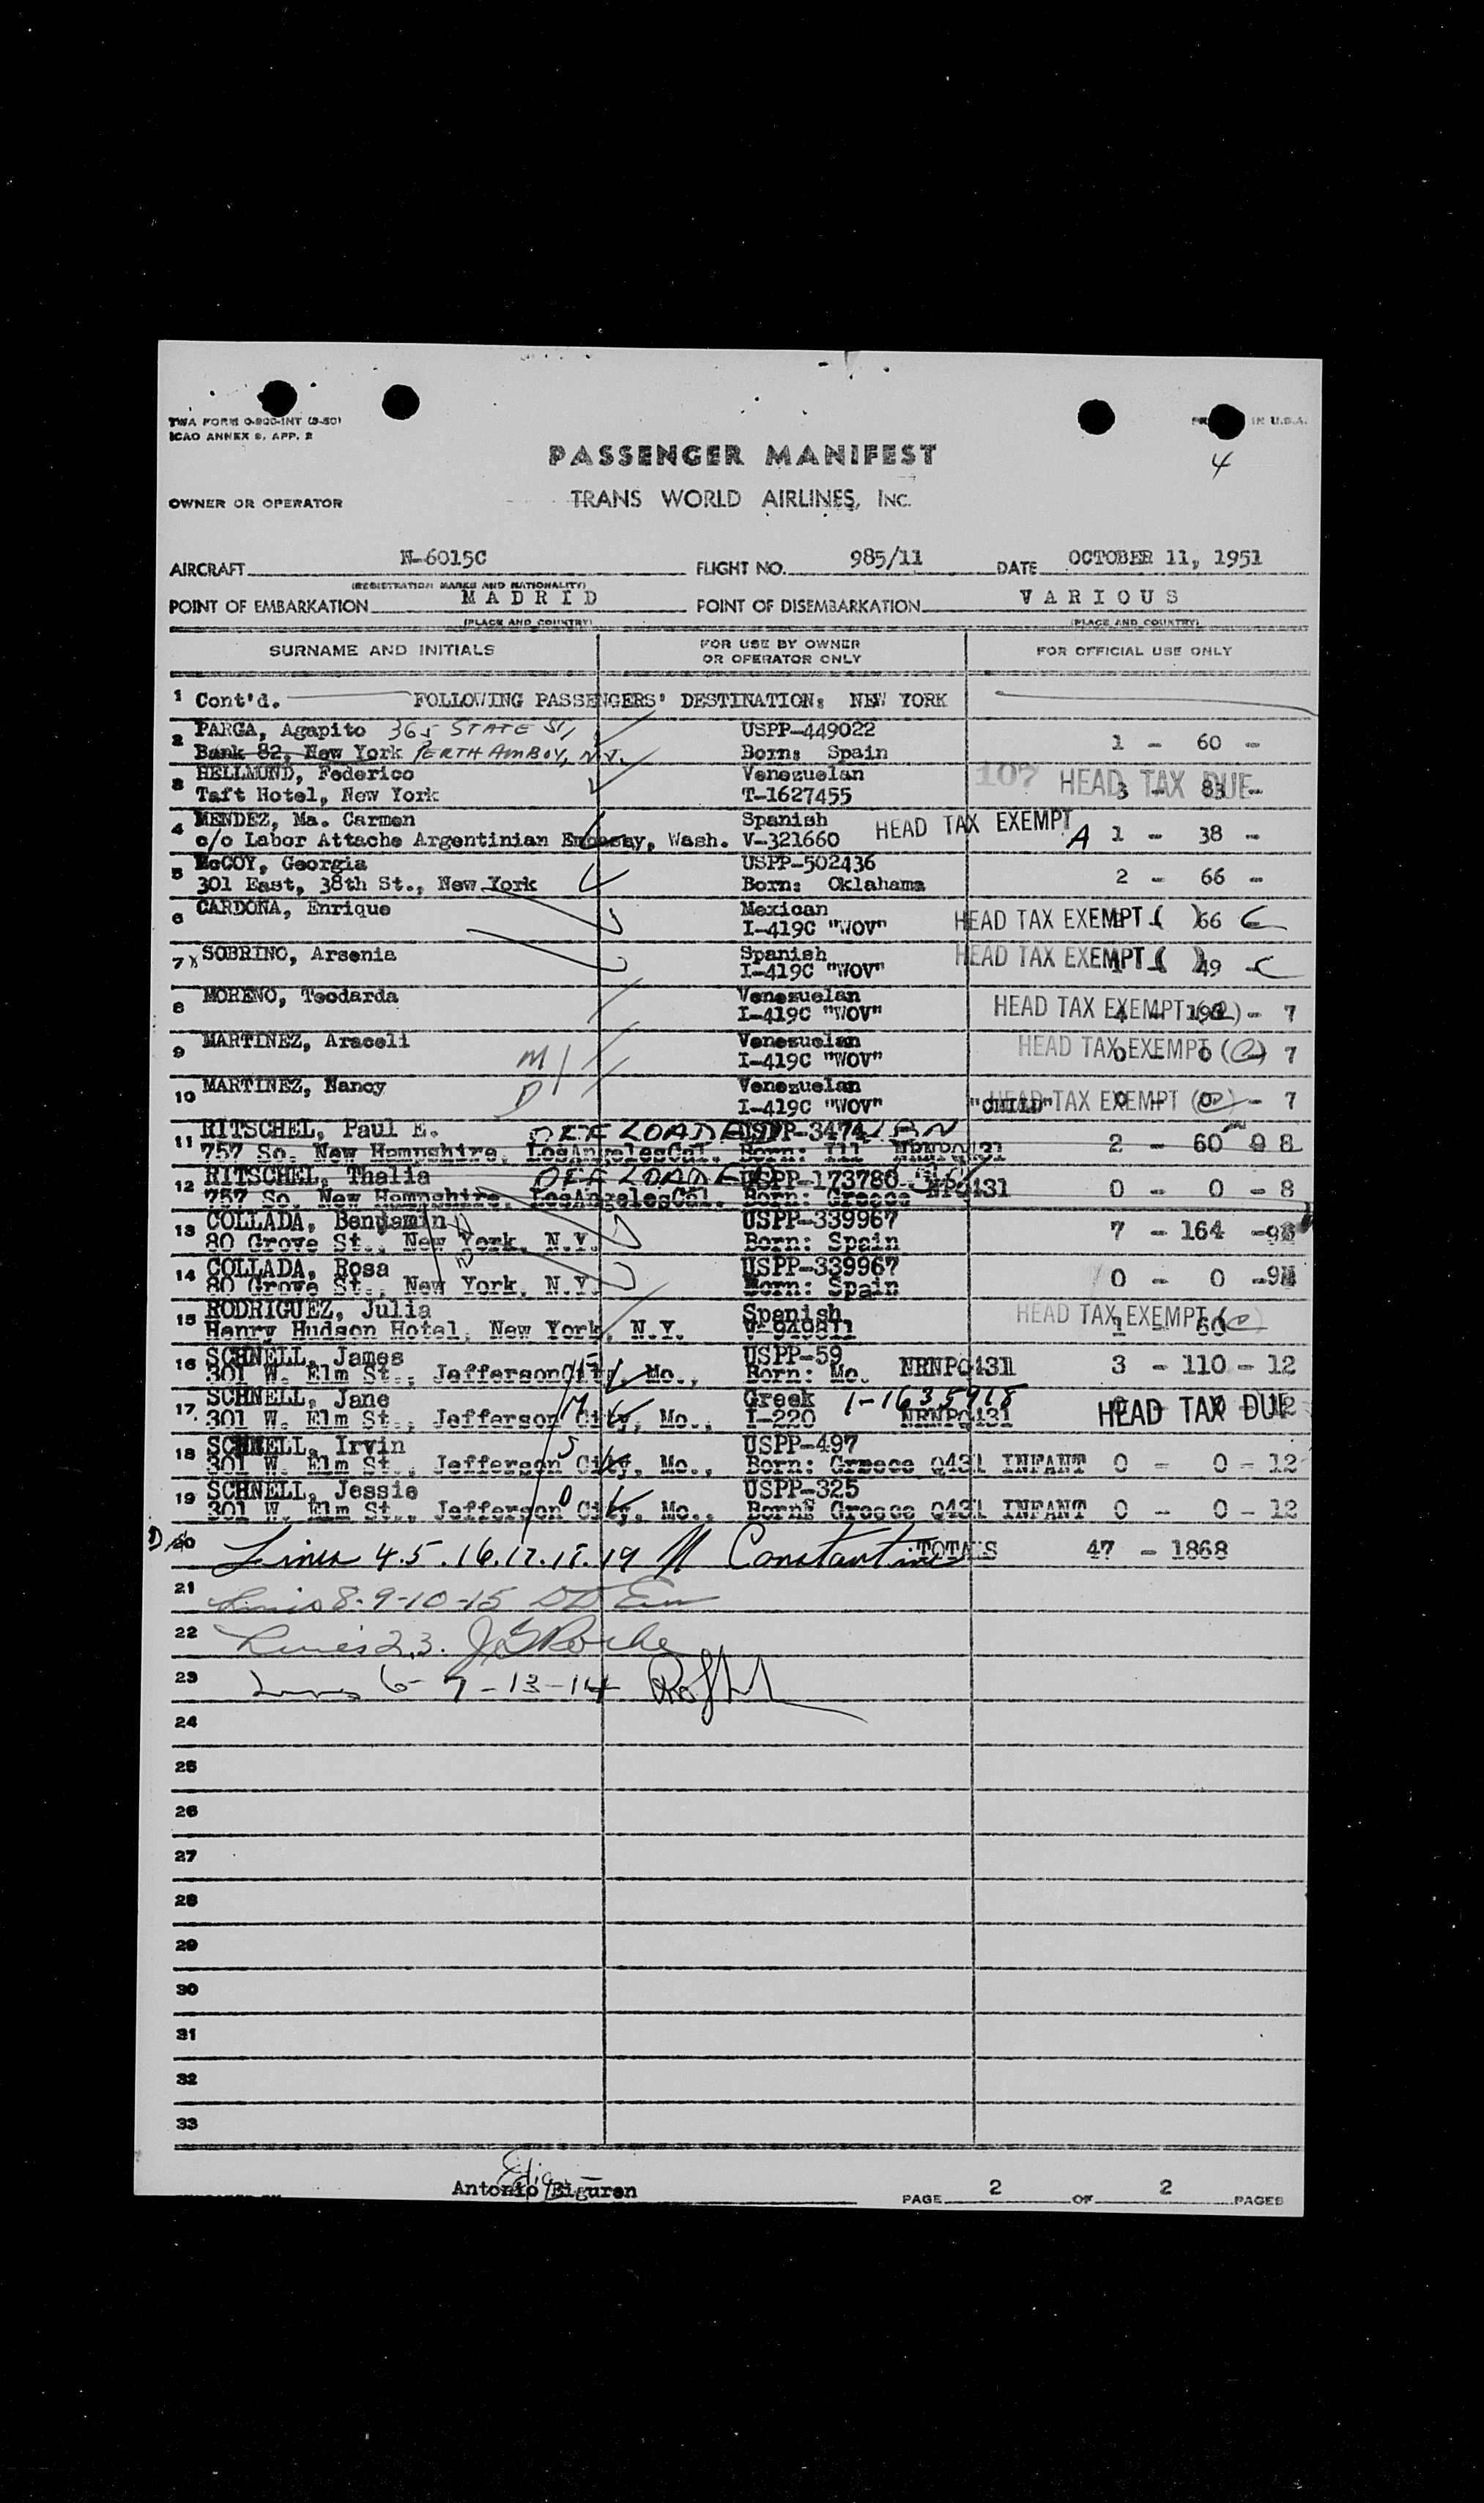 TWA FORM O-900-INT (3-50)
ICAO ANNEX 9, APP. 2
IN U.S.A.
PASSENGER MANIFEST
4
OWNER OR OPERATOR TRANS WORLD AIRLINES, INC.
AIRCRAFT N-6015C FLIGHT NO. 985/11 DATE OCTOBER 11, 1951
(REGISTRATION MARKS AND NATIONALITY)
POINT OF EMBARKATION MADRID POINT OF DISEMBARKATION VARIOUS
(PLACE AND COUNTRY) (PLACE AND COUNTRY)
SURNAME AND INITIALS FOR USE BY OWNER OR OPERATOR ONLY FOR OFFICIAL USE ONLY
1 Cont'd. FOLLOWING PASSENGERS' DESTINATION: NEW YORK
2 PARGA, Agapito 365 STATE St, USPP-449022
Bank 82, New York PERTH AMBOY, N.J. Born: Spain 1 - 60 -
3 HELLMUND, Federico Venezuelan 107 HEAD TAX DUE
Taft Hotel, New York T-1627455 3 - 83 -
4 MENDEZ, Ma. Carmen Spanish HEAD TAX EXEMPT
c/o Labor Attache Argentinian Embassy, Wash. V-321660 A 1 - 38 -
5 McCOY, Georgia USPP-502436
301 East, 38th St., New York Born: Oklahoma 2 - 66 -
6 CARDONA, Enrique Mexican
I-419C "WOV" HEAD TAX EXEMPT ( ) 66 C
7 x SOBRINO, Arsenia Spanish HEAD TAX EXEMPT ( )
I-419C "WOV" 49 - C
8 MORENO, Teodarda Venezuelan
I-419C "WOV" HEAD TAX EXEMPT - 7
9 MARTINEZ, Araceli M Venezuelan
I-419C "WOV" HEAD TAX EXEMPT 0 - 0 7
10 MARTINEZ, Nancy D Venezuelan
I-419C "WOV" "CHILD" HEAD TAX EXEMPT 0 - 7
11 RITSCHEL, Paul E. OFF LOADED USPP-3474 LBN
757 So. New Hampshire, LosAngelesCal. Born: Ill NRNPQ431 2 - 60 8
12 RITSCHEL, Thalia OFF LOADED USPP-173786
757 So. New Hampshire, LosAngelesCal. Born: Greece NPQ431 0 - 0 - 8
13 COLLADA, Benjamin USPP-339967
80 Grove St., New York, N.Y. Born: Spain 7 - 164 -
14 COLLADA, Rosa USPP-339967
80 Grove St., New York, N.Y. Born: Spain 0 - 0 -
15 RODRIGUEZ, Julia Spanish HEAD TAX EXEMPT
Henry Hudson Hotel, New York, N.Y. V-949811
16 SCHNELL, James USPP-59
301 W. Elm St., JeffersonCity, Mo., Born: Mo. NRNPQ431 3 - 110 - 12
17 SCHNELL, Jane M Greek 1-1635918
301 W. Elm St., Jefferson City, Mo., I-220 NRNPQ431 HEAD TAX DUE 12
18 SCHNELL, Irvin S USPP-497
301 W. Elm St., Jefferson City, Mo., Born: Greece Q431 INFANT 0 - 0 - 12
19 SCHNELL, Jessie D USPP-325
301 W. Elm St., Jefferson City, Mo., Born: Greece Q431 INFANT 0 - 0 - 12
20 Lines 4.5.16.17.18.19 Constantine TOTALS 47 - 1868
21 Lines 8-9-10-15
22 Lines 2,3. J.G. Roche
23 Lines 6-7-13-14
24
25
26
27
28
29
30
31
32
33
Antonio Eiguren PAGE 2 OF 2 PAGES